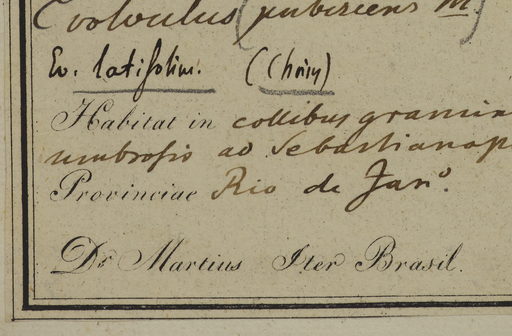 Evolvulus (pubescens M)
Ev. latifolius. (Choisy)
Habitat in collibus gramin
umbrosis ad Sebastianop
Provinciae Rio de Jan°.
Dr. Martius Iter Brasil.